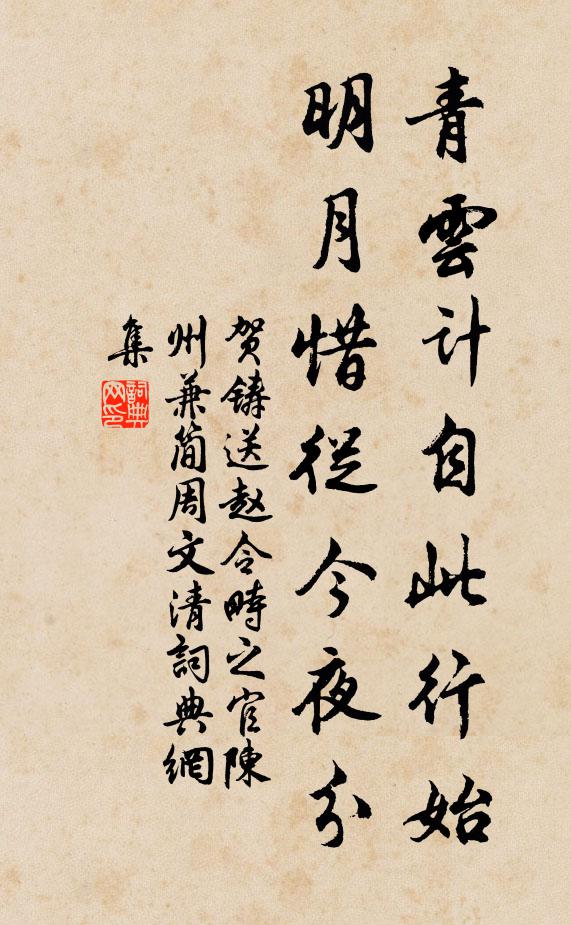 青雲計自此行始
明月惜從今夜分
贺鑄送赵令畤之官陳
州兼简周文清詞典網
集
詞典网印